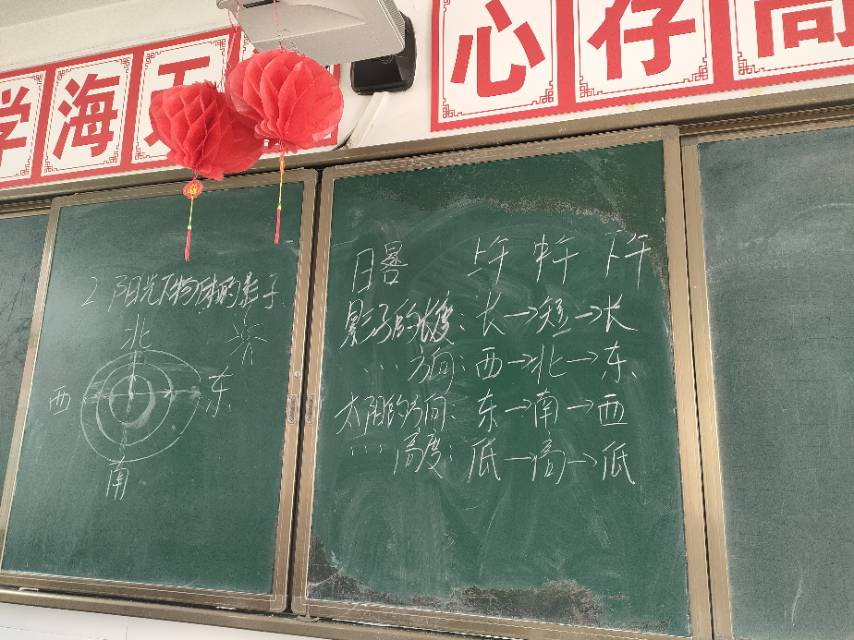 学海无
心存高
2 阳光下物体的影子
北
西 东
南
日晷 上午 中午 下午
影子的长度: 长→短→长
… 方向: 西→北→东
太阳的方向: 东→南→西
… 高度: 低→高→低